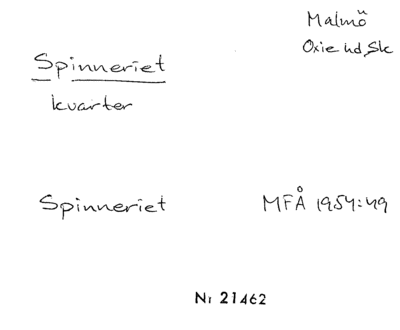 Malmö
Oxie hd, Sk
Spinneriet
kvarter
Spinneriet MFÅ 1954:49
Nr 21462